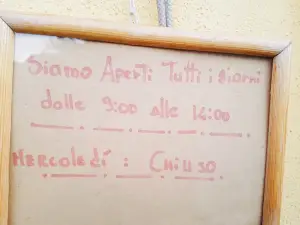 Siamo Aperti Tutti i giorni
dalle 9:00 alle 14:00
MERCOLEDÍ : CHIUSO